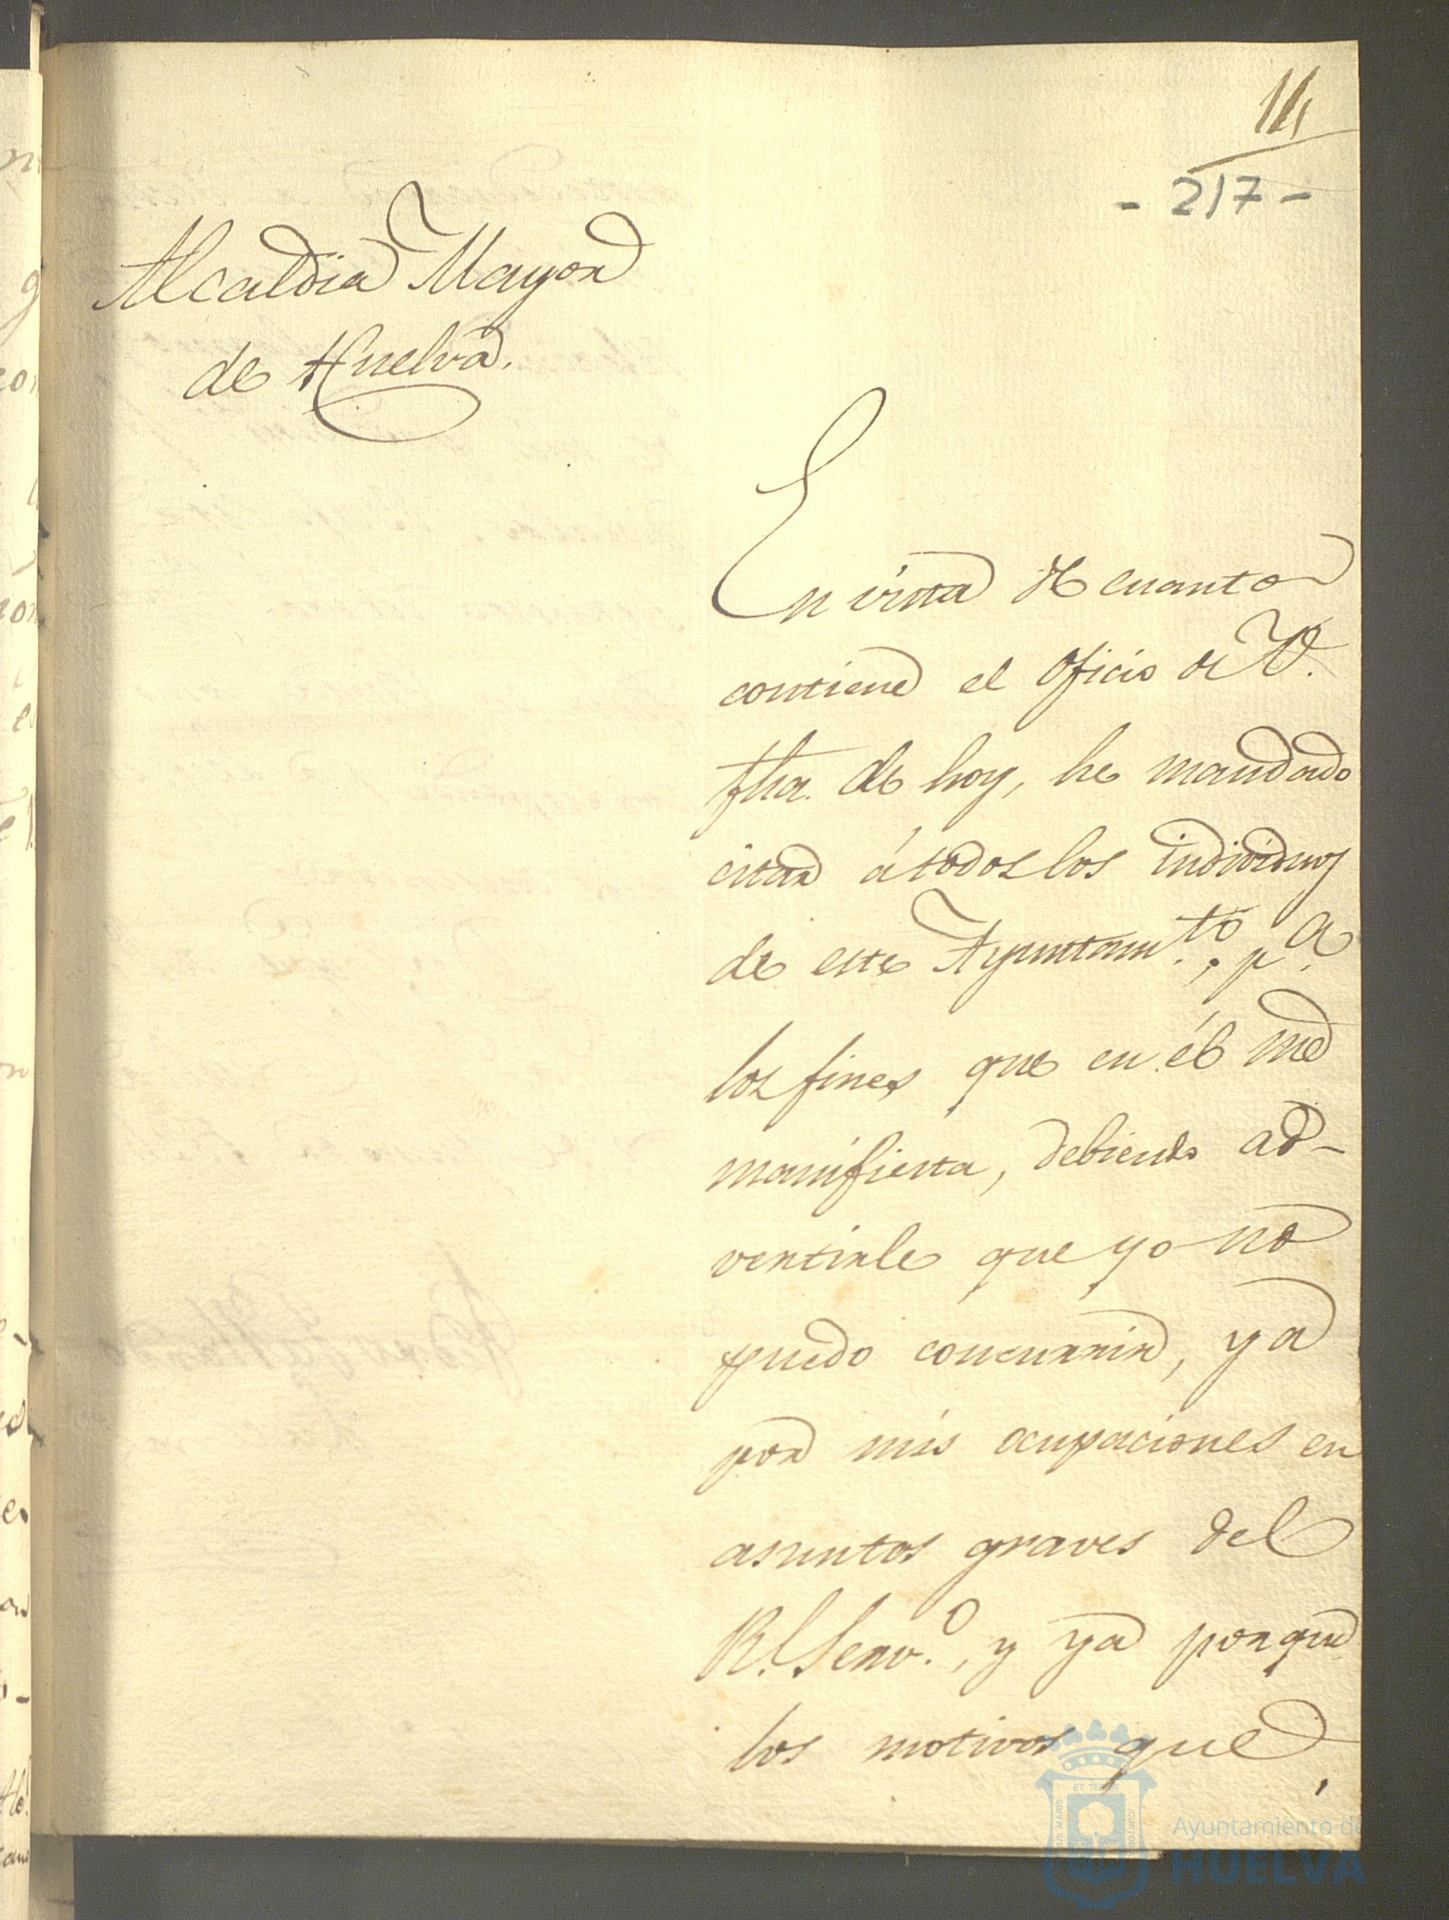 14
- 217 -
Alcaldia Mayor
de Huelva.
En vista de cuanto
contiene el Oficio de V.
fha. de hoy, he mandado
citar á todos los individuos
de este Ayuntam.to, p.a
los fines que en él me
manifiesta, debiendo ad-
vertirle que yo no
puedo concurrir, ya
por mis ocupaciones en
asuntos graves del
R.l Serv.o, y ya porque
los motivos que
Ayuntamiento de
HUELVA